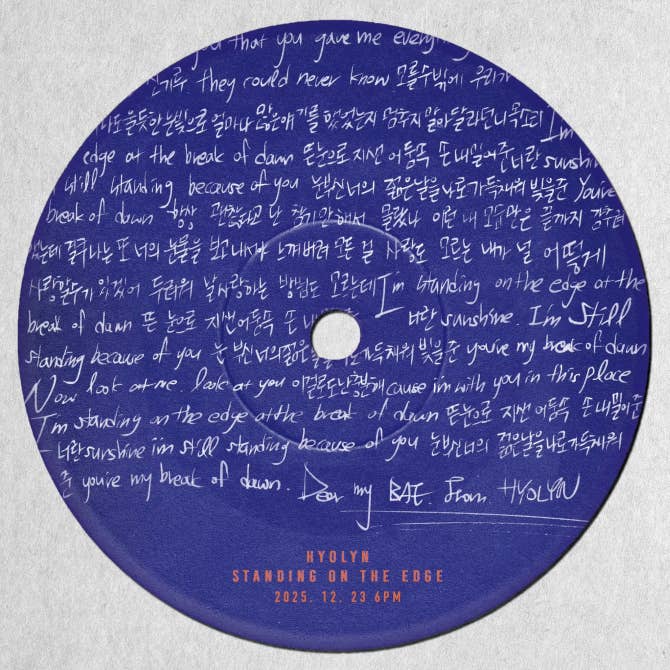 that you gave me every
they could never know 모를수밖에 우리가
나도 울듯한 눈빛으로 얼마나 많은 얘기를 했었는지 멈추지 말아달라던 니 목소리 I'm
edge at the break of dawn 뜬눈으로 지샌 어둠속 손 내밀어준 너란 sunshine
still standing because of you 눈부신 너의 젊은날을 나로 가득채워 빛을 준 You're
break of dawn 항상 괜찮다고 난 참기만 해서 몰랐나 이런 내 모습만은 끝까지 감추려
했는데 결국 나는 또 너의 눈물을 보고 내서야 느껴버려 모든 걸 사랑도 모르는 내가 널 어떻게
사랑할 수가 있겠어 두려워 날 사랑하는 방법도 모르는데 I'm standing on the edge at the
break of dawn 뜬 눈으로 지샌 어둠속 손 내 너란 sunshine. I'm still
standing because of you 눈부신 너의 젊은 가득채워 빛을 준 you're my break of dawn
Now look at me. look at you 이걸로도 난 cause i'm with you in this place
I'm standing on the edge at the break of dawn 뜬눈으로 지샌 어둠속 손 내밀어준
너란 sunshine i'm still standing because of you 눈부신 너의 젊은날을 나로 가득채워
준 you're my break of dawn. Dear my BAE. From HYOLYN
HYOLYN
STANDING ON THE EDGE
2025. 12. 23 6PM